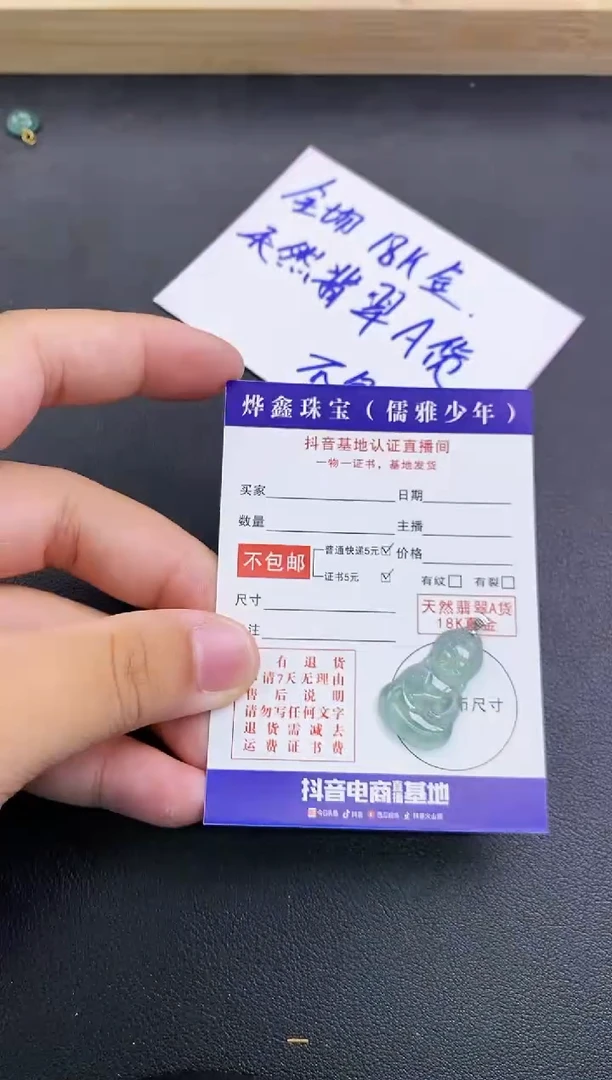 全场 18K金.
天然翡翠A货
不包
烨鑫珠宝（儒雅少年）
抖音基地认证直播间
一物一证书，基地发货
买家 日期
数量 主播
不包邮 普通快递5元 价格
证书5元
有纹 有裂
尺寸
天然翡翠A货
18K真金
注
有退货
请7天无理由
售后说明
请勿写任何文字
退货需减去
运费证书费
币尺寸
抖音电商直播基地
今日头条 抖音 西瓜视频 抖音火山版